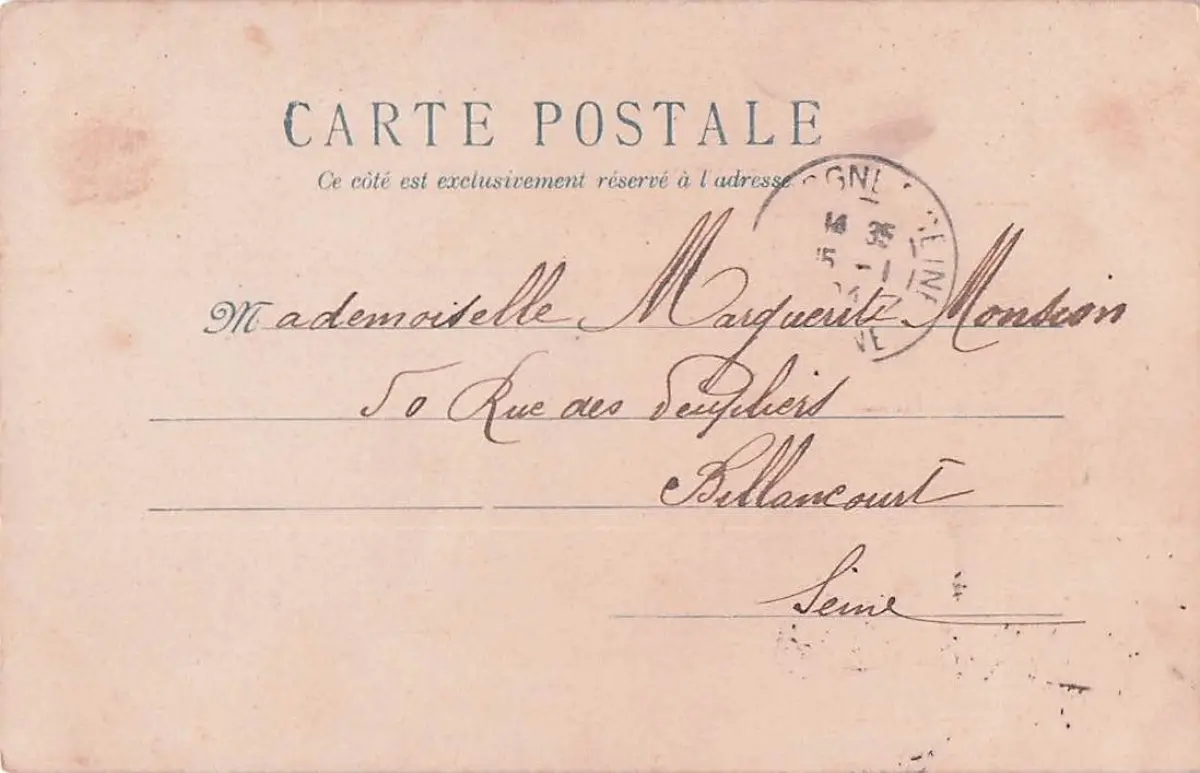 CARTE POSTALE
Ce côté est exclusivement réservé à l'adresse
OGNE SEINE
14 35
15 -1
NE
Mademoiselle Marguerite Monsion
50 Rue des Peupliers
Billancourt
Seine